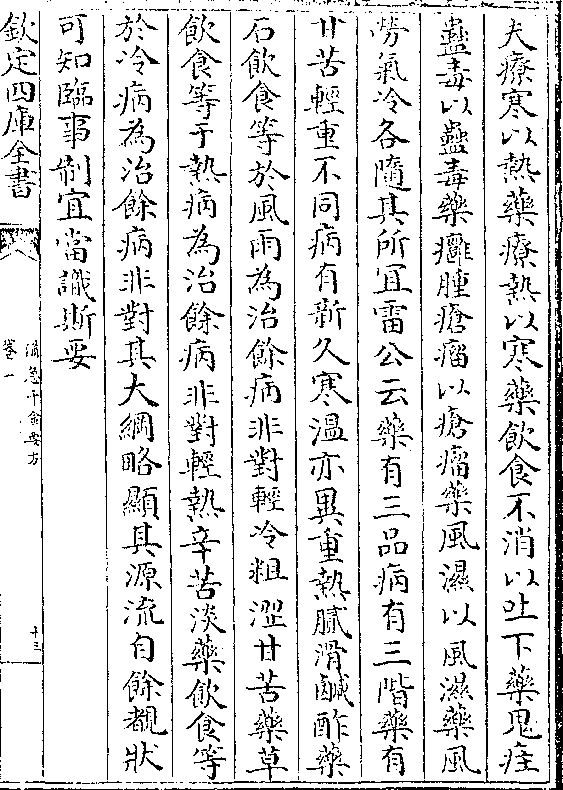 夫療寒以熱藥療熱以寒藥飲食不消以吐下藥鬼疰
蠱毒以蠱毒藥癰腫瘡瘤以瘡瘤藥風濕以風濕藥風
勞氣冷各隨其所宜雷公云藥有三品病有三階藥有
甘苦輕重不同病有新久寒溫亦異重熱膩滑鹹酢藥
石飲食等於風雨為治餘病非對輕冷粗澀甘苦藥草
飲食等于熱病為治餘病非對輕熱辛苦淡藥飲食等
於冷病為治餘病非對其大綱略顯其源流自餘覩狀
可知臨事制宜當識斯要
欽定四庫全書
備急千金要方
卷一
十三